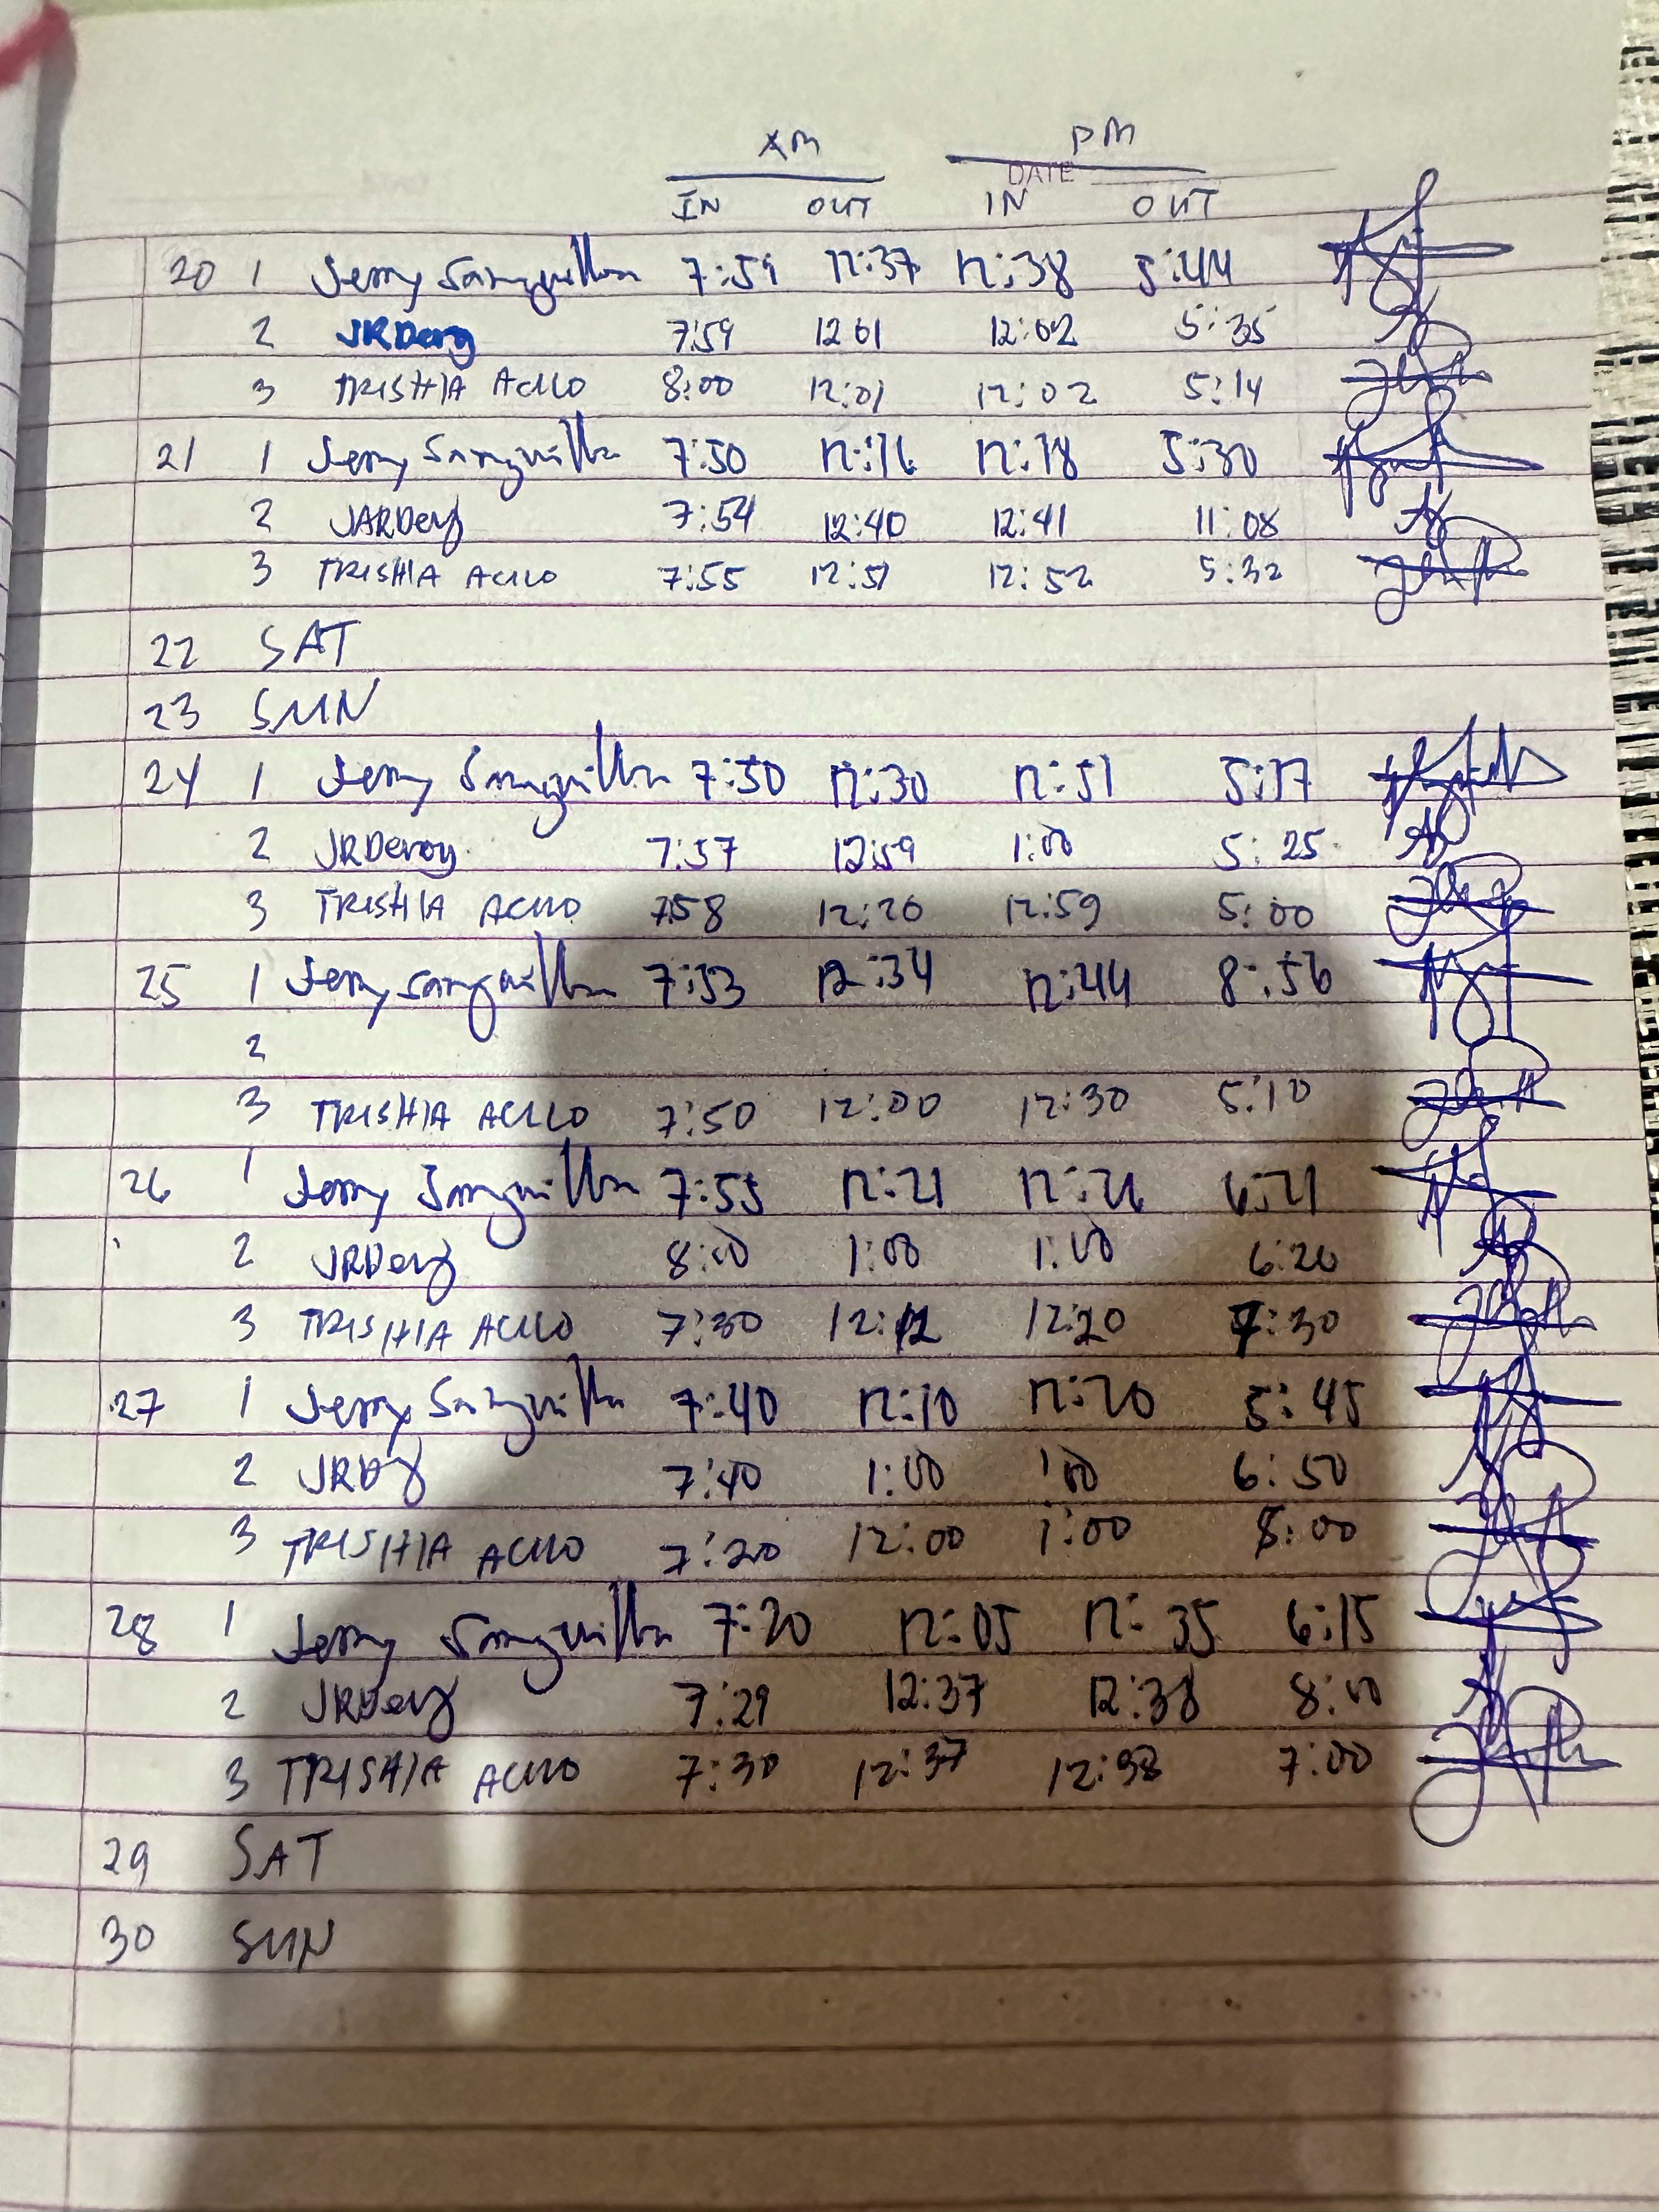 AM PM
DATE
IN OUT IN OUT
20 1 Jerry Sanquilla 7:59 12:37 12:38 5:44
2 JRDeroy 7:59 12 01 12:02 5:35
3 TRISHIA ACULLO 8:00 12:01 12:02 5:14
21 1 Jerry Sanquilla 7:50 12:16 12:18 5:30
2 7:54 12:40 12:41 11:08
3 TRISHIA ACULLO 7:55 12:51 12:52 5:32
22 SAT
23 SUN
24 1 Jerry Sanquilla 7:50 12:30 12:51 5:17
2 JRDeroy 7:57 12:59 1:00 5:25
3 TRISHIA ACULLO 758 12:20 12:59 5:00
25 1 Jerry Sanquilla 7:53 12:34 12:44 8:56
2
3 TRISHIA ACULLO 7:50 12:00 12:30 5:10
26 1 Jerry Sanquilla 7:55 12:21 12:26 6:21
2 8:00 1:00 1:00 6:20
3 TRISHIA ACULLO 7:30 12:12 12:20 7:30
27 1 Jerry Sanquilla 7:40 12:10 12:20 5:45
2 7:40 1:00 1:00 6:50
3 TRISHIA ACULLO 7:20 12:00 1:00 8:00
28 1 Jerry Sanquilla 7:20 12:05 12:35 6:15
2 7:29 12:37 12:38 8:00
3 TRISHIA ACULLO 7:30 12:37 12:38 7:00
29 SAT
30 SUN